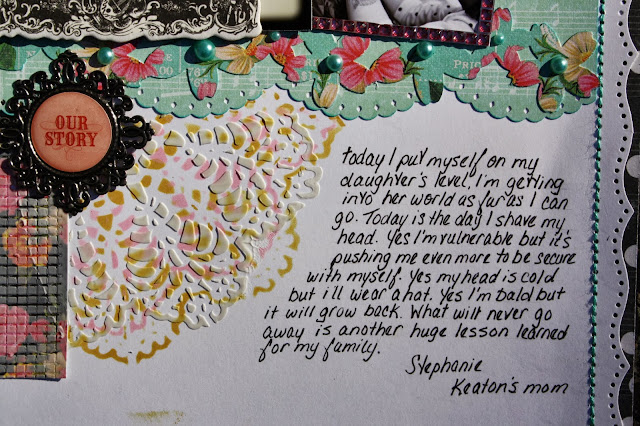 OUR
STORY
today I put myself on my
daughter's level. I'm getting
into her world as far as I can
go. Today is the day I shave my
head. Yes I'm vulnerable but it's
pushing me even more to be secure
with myself. Yes my head is cold
but i'll wear a hat. Yes I'm bald but
it will grow back. What will never go
away is another huge lesson learned
for my family.
Stephanie
Keaton's mom